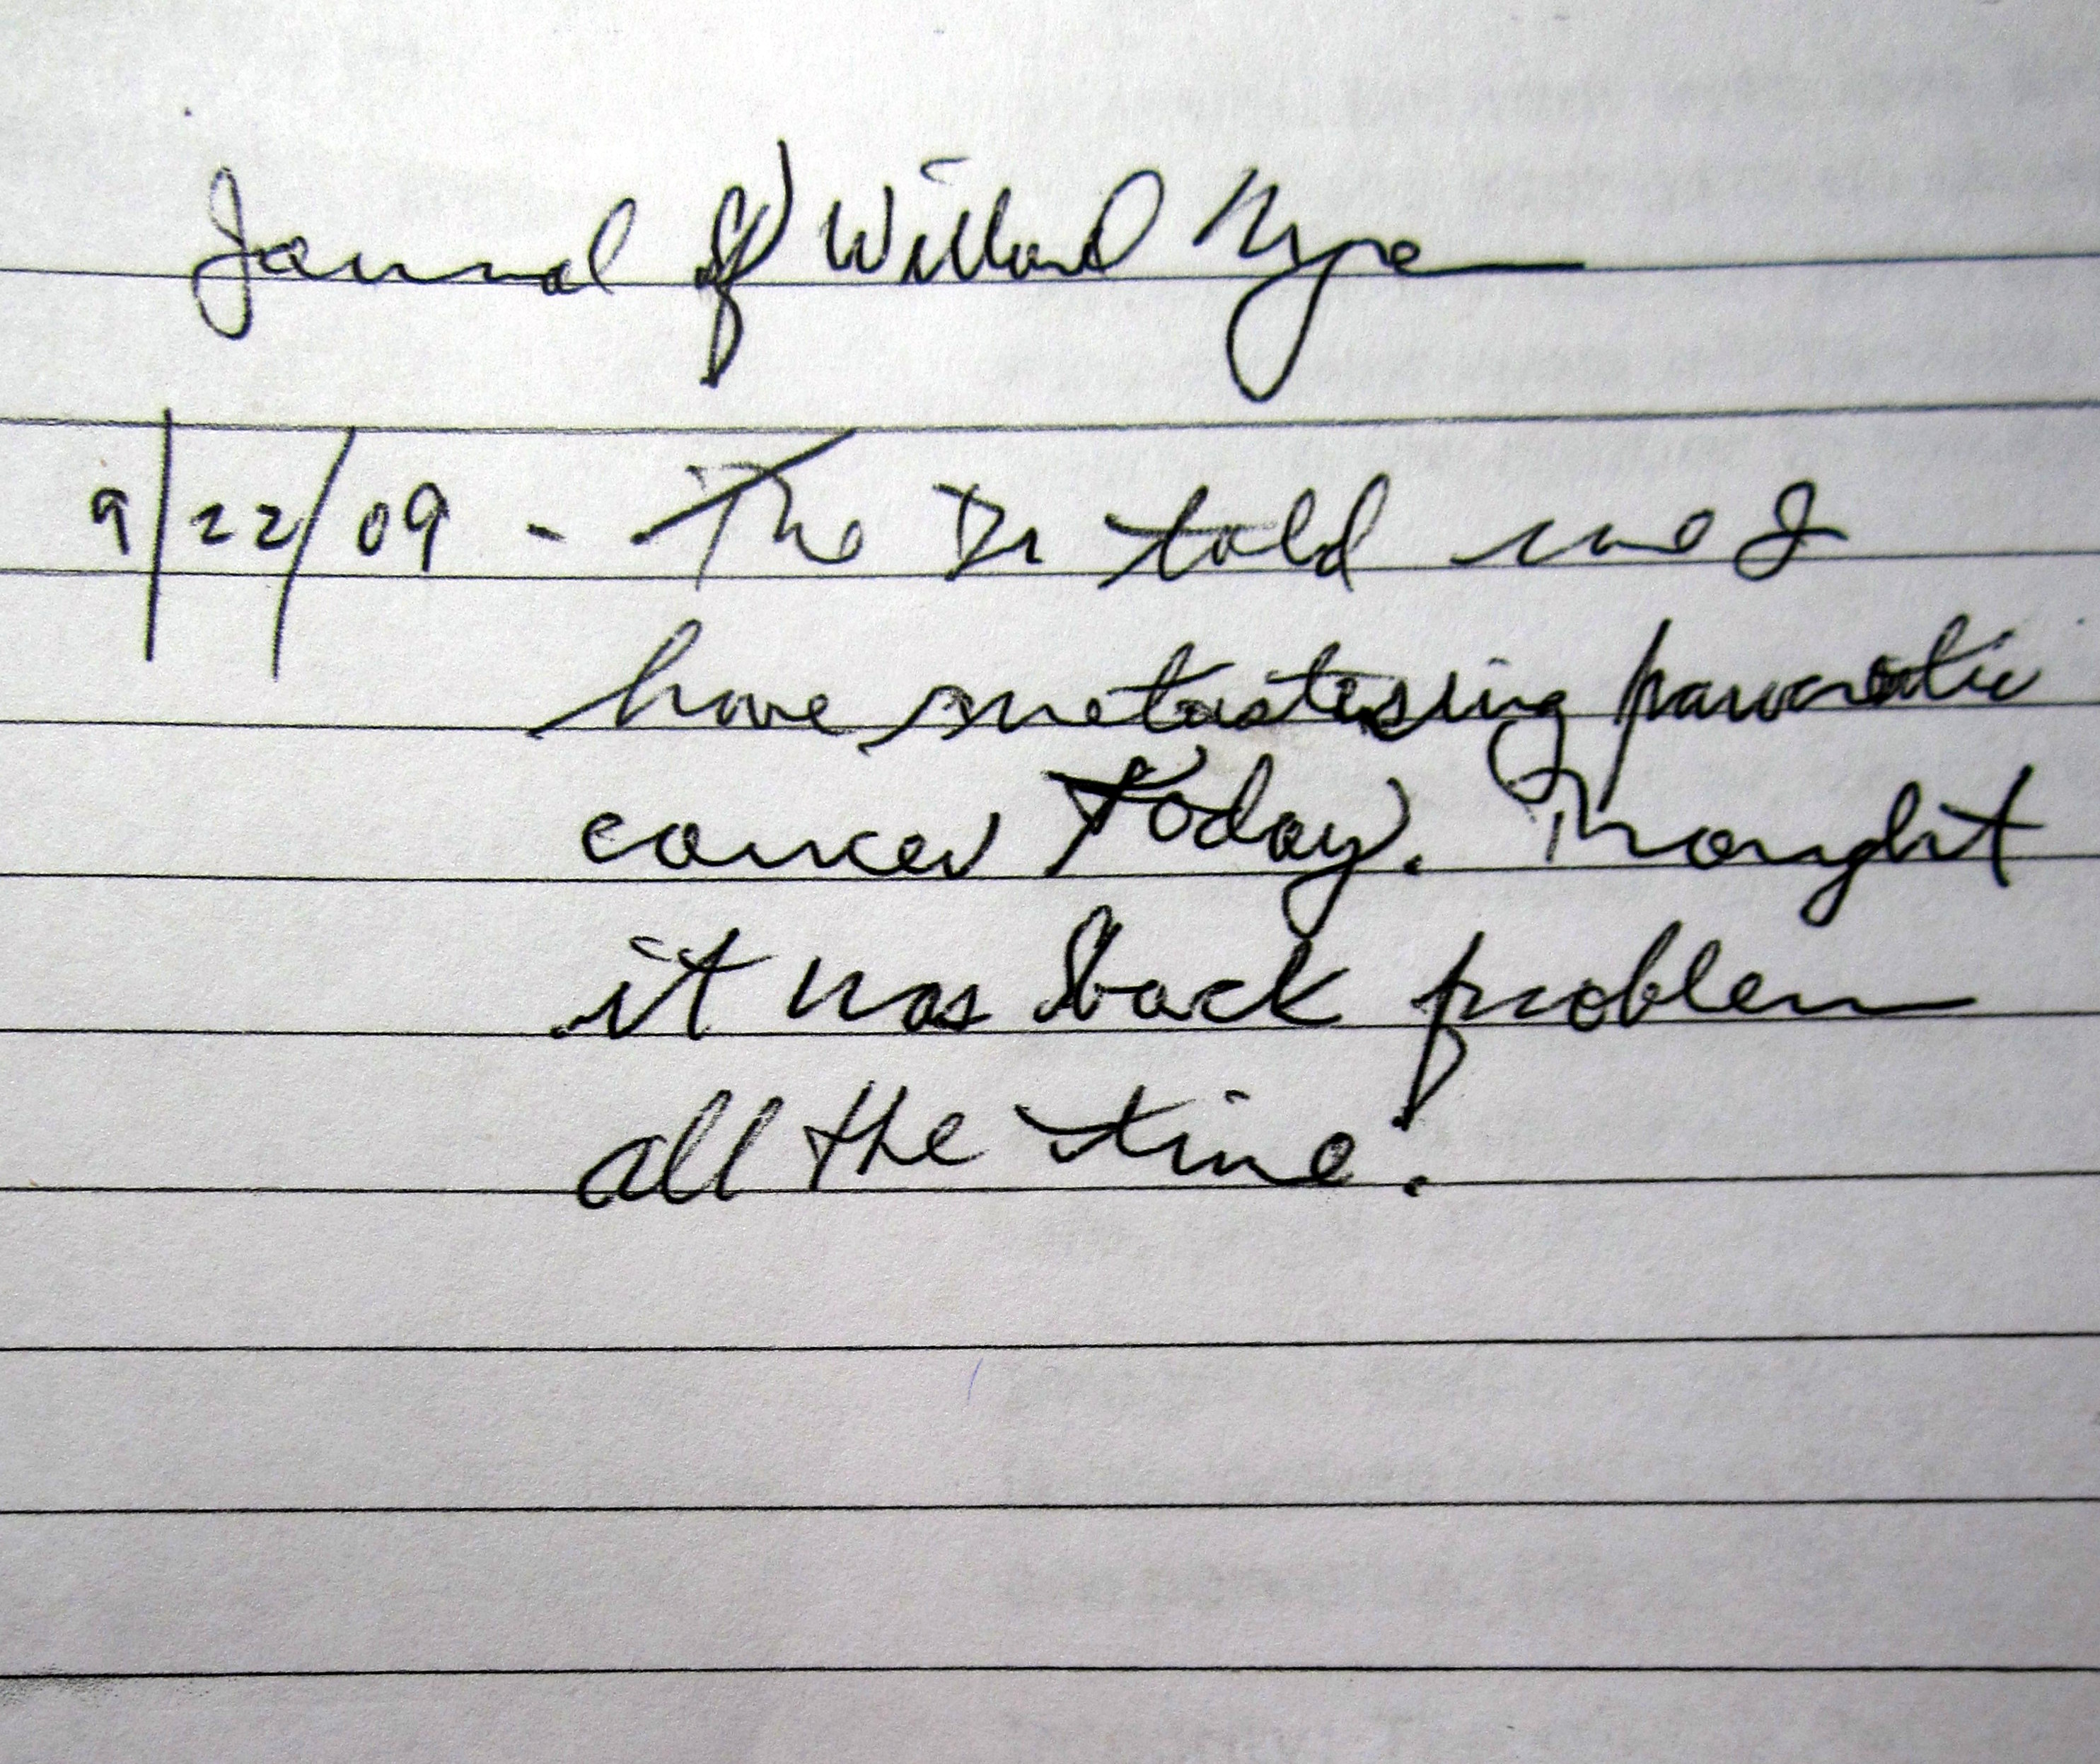 Journal of Willard
9/22/09 - The Dr told me I
have metastesing pancreatic
cancer today. Thought
it was back problem
all the time.